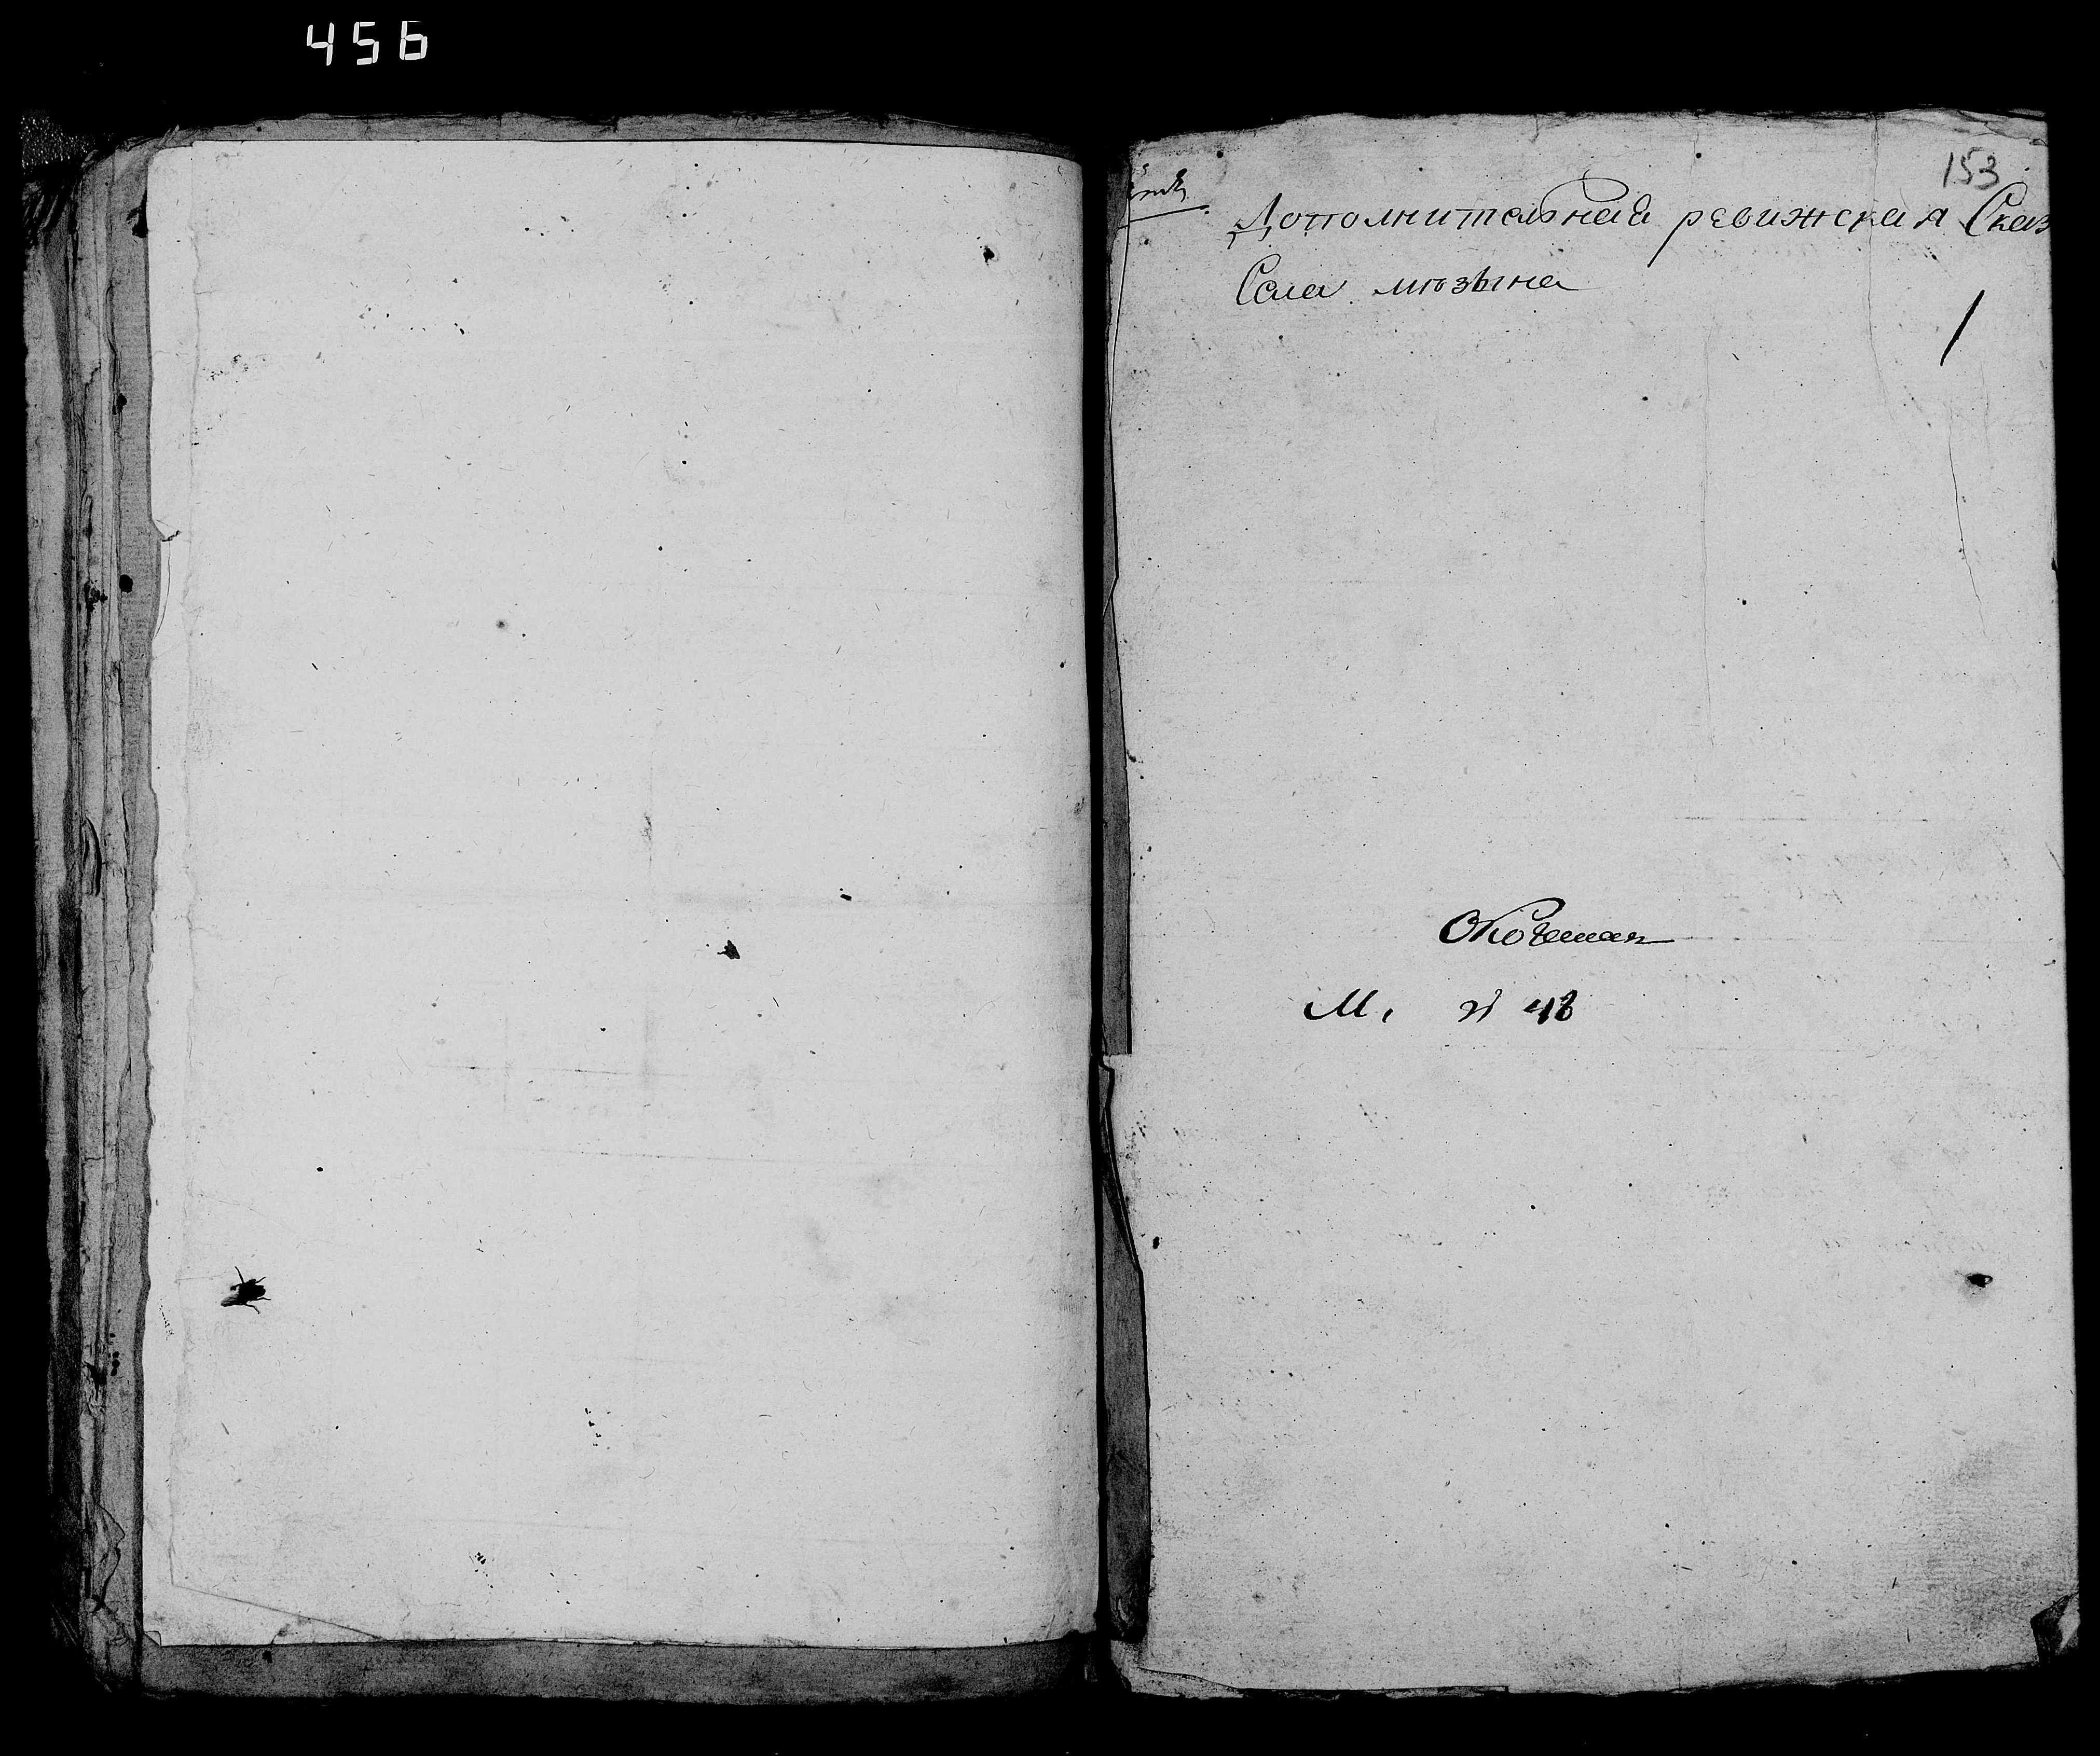 456
153
Дополнительная ревижская Сказ
Села мюзына
1
М. № 48